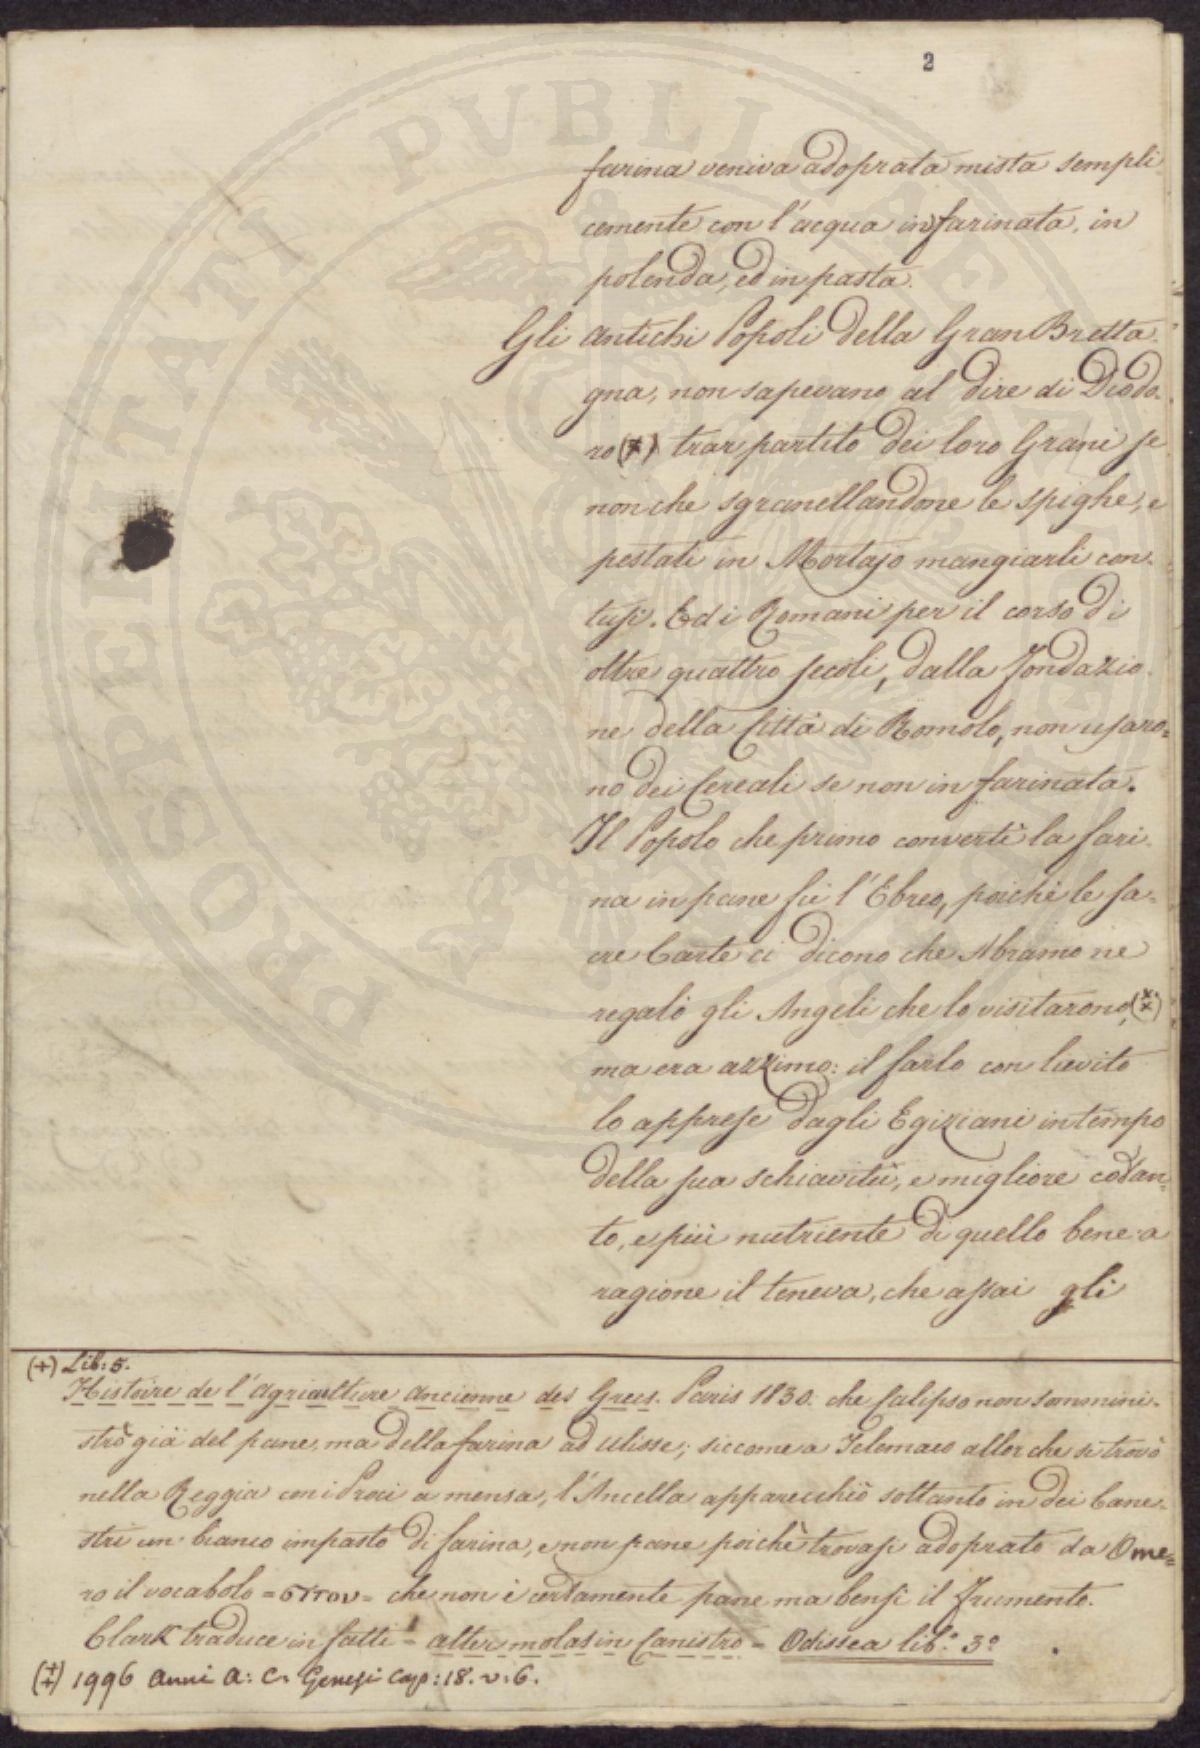 2
farina veniva adoprata mista sempli
cemente con l'acqua in farinata, in
polenda, ed in pasta.
Gli antichi Popoli della Gran Bretta-
gna, non sapevano al dire di Diodo-
ro (+) trar partito dei loro Grani se
non che sgranellandone le spighe, e
pestati in Mortajo mangiarli con-
tusi. Ed i Romani per il corso di
oltre quattro secoli, dalla Fondazio-
ne della Città di Romolo, non usaro=
no dei Cereali se non in farinata.
Il Popolo che primo convertì la fari-
na in pane fù l'Ebreo, poichè le sa=
cre Carte ci dicono che Abramo ne
regalò gli Angeli che lo visitarono, (‡)
ma era azzimo: il farlo con lievito
lo apprese dagli Egiziani in tempo
della sua schiavitù, e migliore cotan=
to, e più nutriente di quello bene a
ragione il teneva, che assai gli
(+) Lib: 5.
Histoire de l'Agriculture ancienne des Grecs. Paris 1830. che Calipso non sommini-
strò già del pane, ma della farina ad Ulisse; siccome a Telemaco allor che si trovò
nella Reggia con i Proci a mensa, l'Ancella apparecchiò soltanto in dei Cane-
stri un bianco impasto di farina, e non pane poichè trovasi adoprato da Ome=
ro il vocabolo = σιτον = che non è certamente pane ma bensì il Frumento.
Clark traduce in fatti = alter molas in Canistro = Odissea lib.° 3°
(‡) 1996 anni a: C. Genesi Cap: 18. v: 6.
PROSPERITATI PVBLICAE